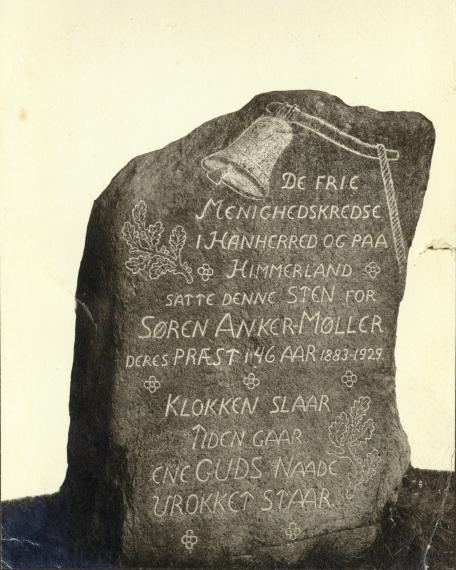 DE FRIE
MENIGHEDSKREDSE
I HANHERRED OG PAA
HIMMERLAND
SATTE DENNE STEN FOR
SØREN ANKER-MØLLER
DERES PRÆST I 46 AAR 1883-1929
KLOKKEN SLAAR
TIDEN GAAR
ENE GUDS NAADE
UROKKET STAAR